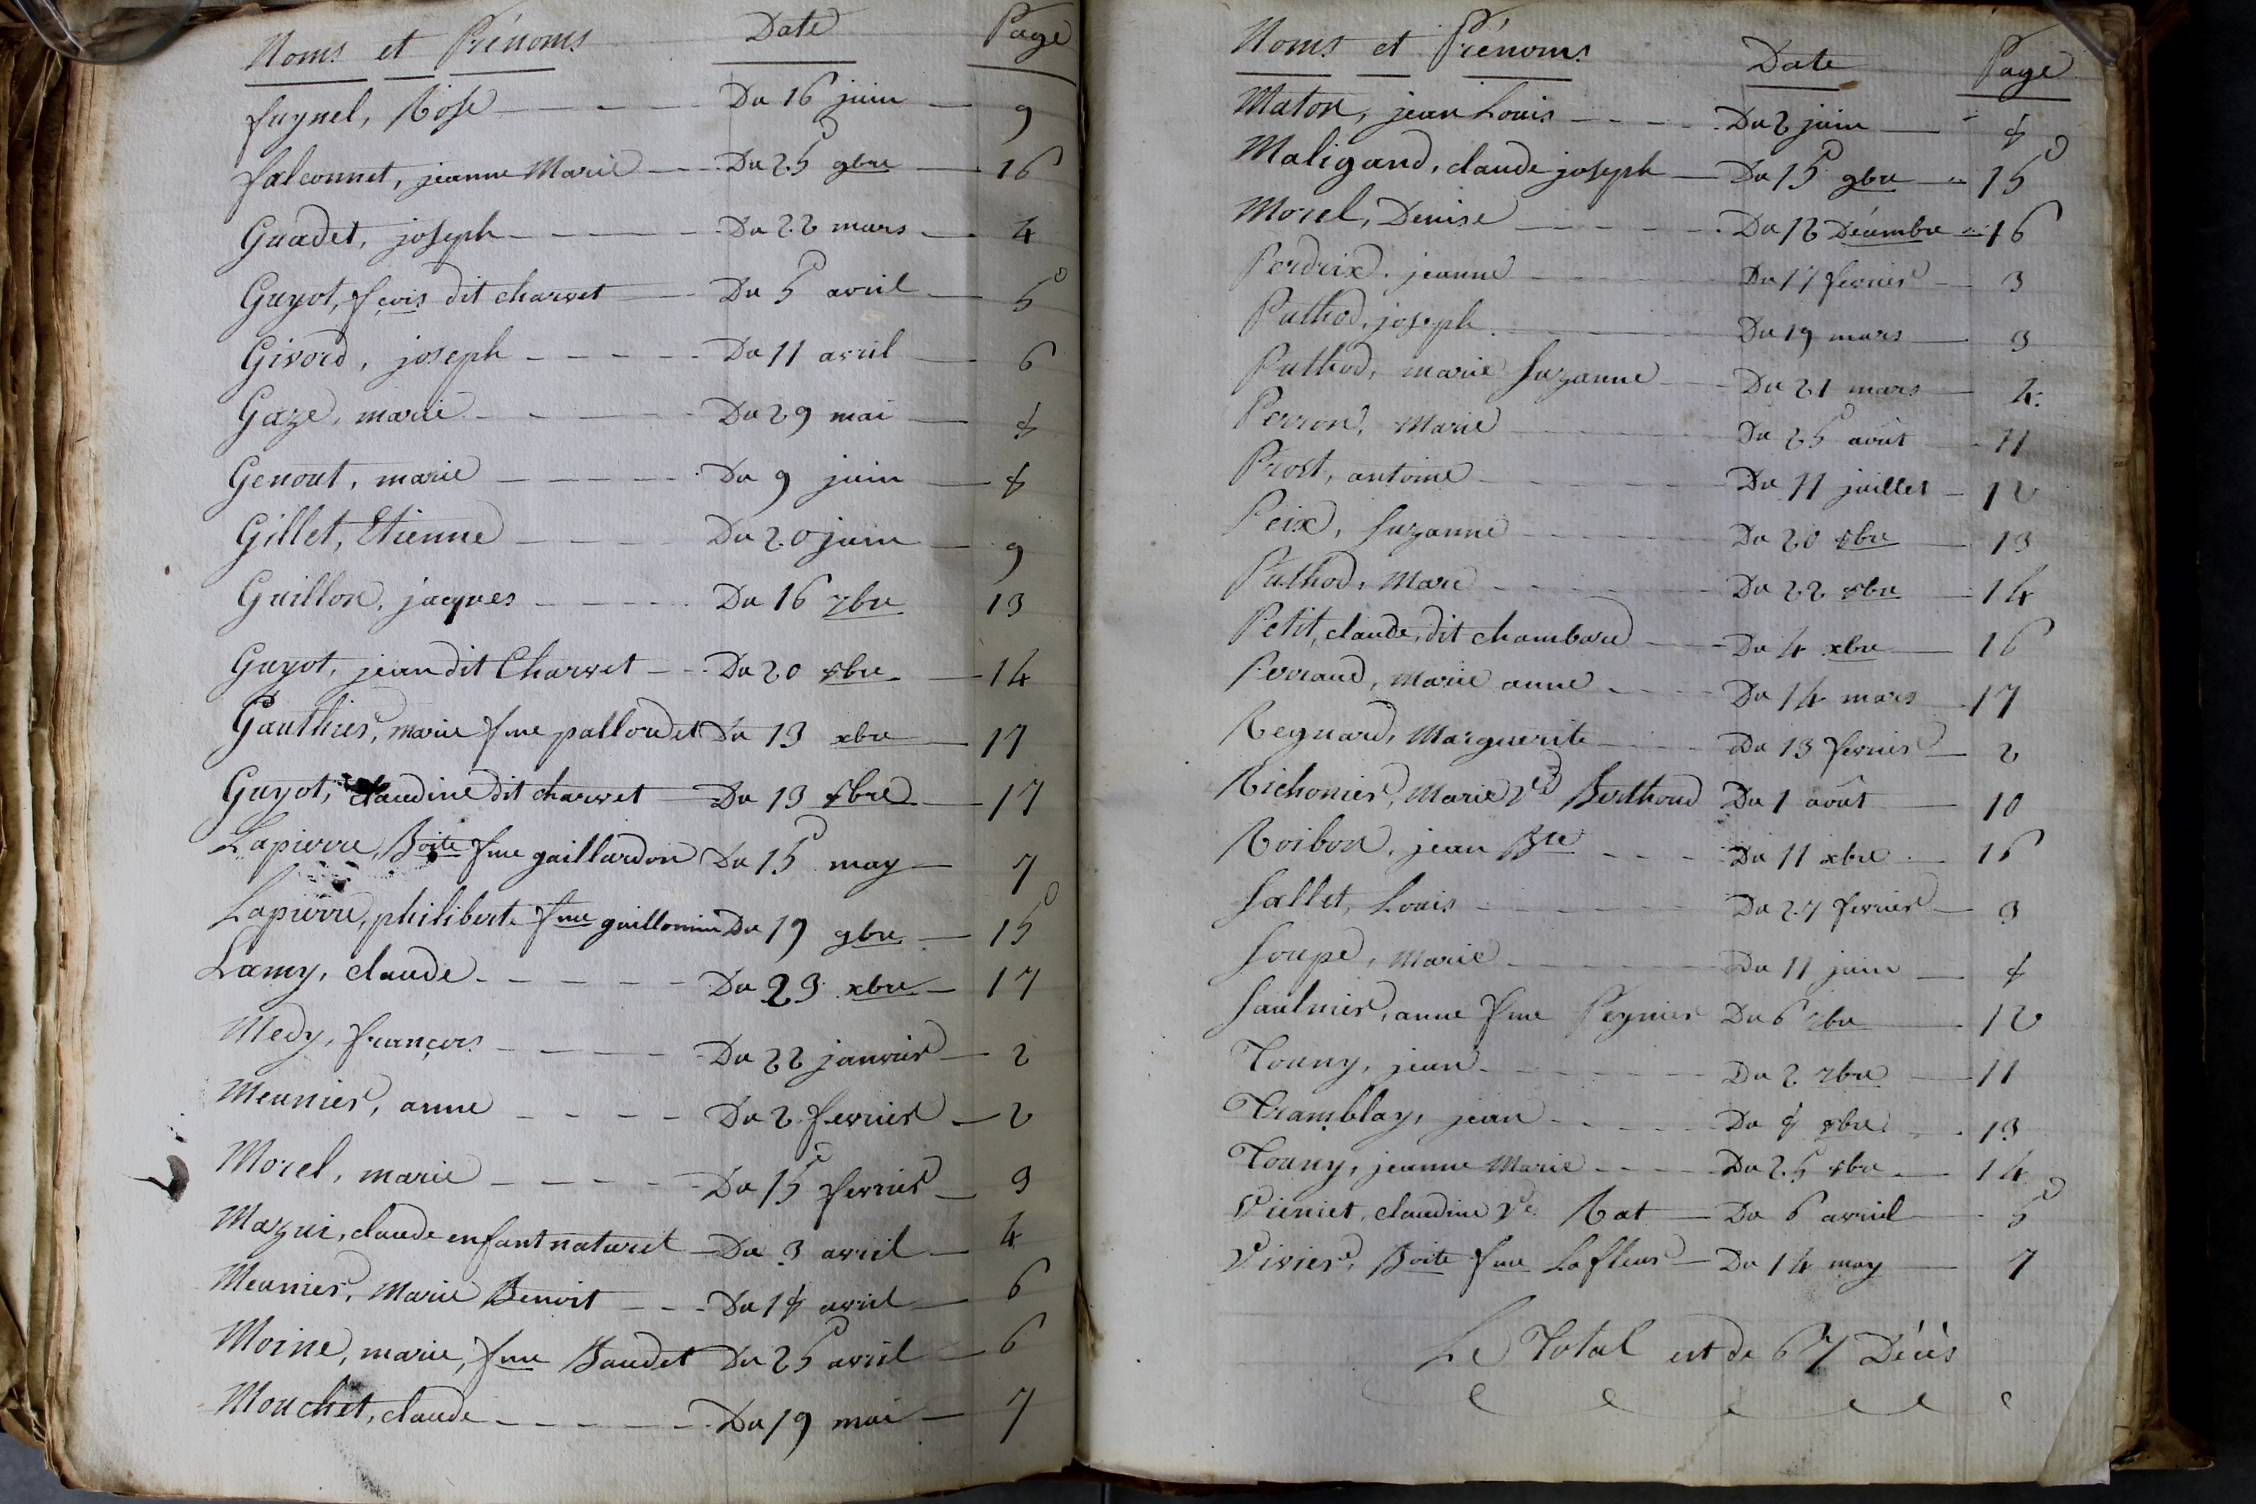 Noms et Prénoms Date Page
fuynel, Rose Du 16 juin 9
falconnet, jeanne Marie Du 25 9bre 16
Guadet, joseph Du 22 mars 4
Guyot, fçois dit charvet Du 5 avril 5
Givord, joseph Du 11 avril 6
Gaze, marie Du 29 mai 8
Genout, marie Du 9 juin 8
Gillet, Etienne Du 20 juin 9
Guillon, jacques Du 16 7bre 13
Guyot, jean dit Charvet Du 20 8bre 14
Gauthier, marie fme palloudet Du 13 xbre 17
Guyot, claudine dit charvet Du 13 8bre 17
Lapierre, Boite fme gaillardon Du 15 may 7
Lapierre, philiberte fme guillomin Du 19 9bre 15
Lamy, claude Du 23 xbre 17
Medy, françois Du 22 janvier 2
Meunier, anne Du 2 fevrier 2
Morel, marie Du 15 fevrier 3
Mazui, claude enfant naturel Du 3 avril 4
Meunier, Marie Benoit Du 18 avril 6
Moine, marie, fme Baudet Du 25 avril 6
Mouchet, claude Du 19 mai 7
Noms et Prénoms Date Page
Maton, jean Louis Du 2 juin 8
Maligand, claude joseph Du 15 9bre 15
Morel, Denise Du 12 Décembre 16
Perdrix, jeanne Du 17 fevrier 3
Puthod, joseph Du 19 mars 3
Puthod, marie Suzanne Du 21 mars 4
Perron, Marie Du 25 août 11
Prost, antoine Du 11 juillet 12
Peix, Suzanne Du 20 8bre 13
Puthod, Marie Du 22 8bre 14
Petit, claude, dit chambard Du 4 xbre 16
Perraud, Marie anne Du 14 mars 17
Reynard, Marguerite Du 13 fevrier 2
Richonier, Marie Ve Berthoud Du 1 août 10
Roibon, jean Bte Du 11 xbre 16
Sallet, Louis Du 27 fevrier 3
Soupe, Marie Du 11 juin 8
Saulnier, anne fme Peynier Du 6 7bre 12
Touny, jean Du 2 7bre 11
Tramblay, jean Du 8 8bre 13
Touny, jeanne Marie Du 25 8bre 14
Vieniet, claudine Ve Rat Du 6 avril 5
Vivier, Boite fme Lafleur Du 14 may 7
Le Total est de 67 Décès